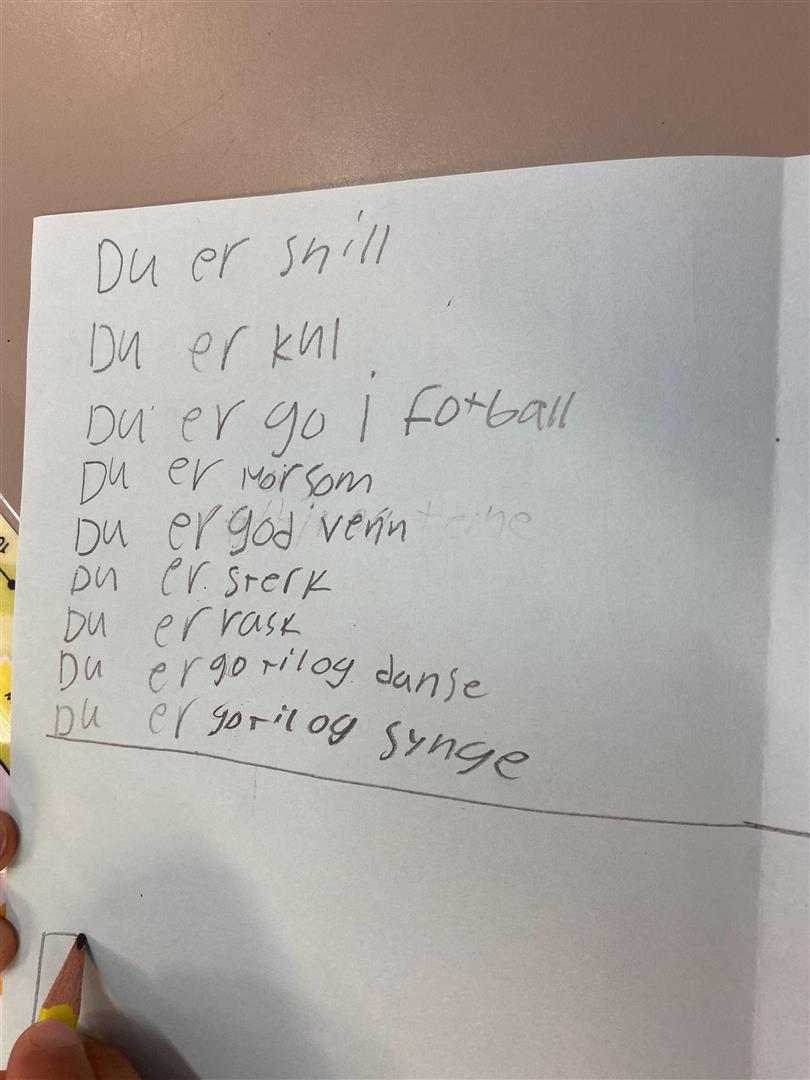 Du er snill
Du er kul
Du er go i fotball
Du er morsom
Du er god venn
Du er sterk
Du er rask
Du er go tilog danse
Du er go tilog synge